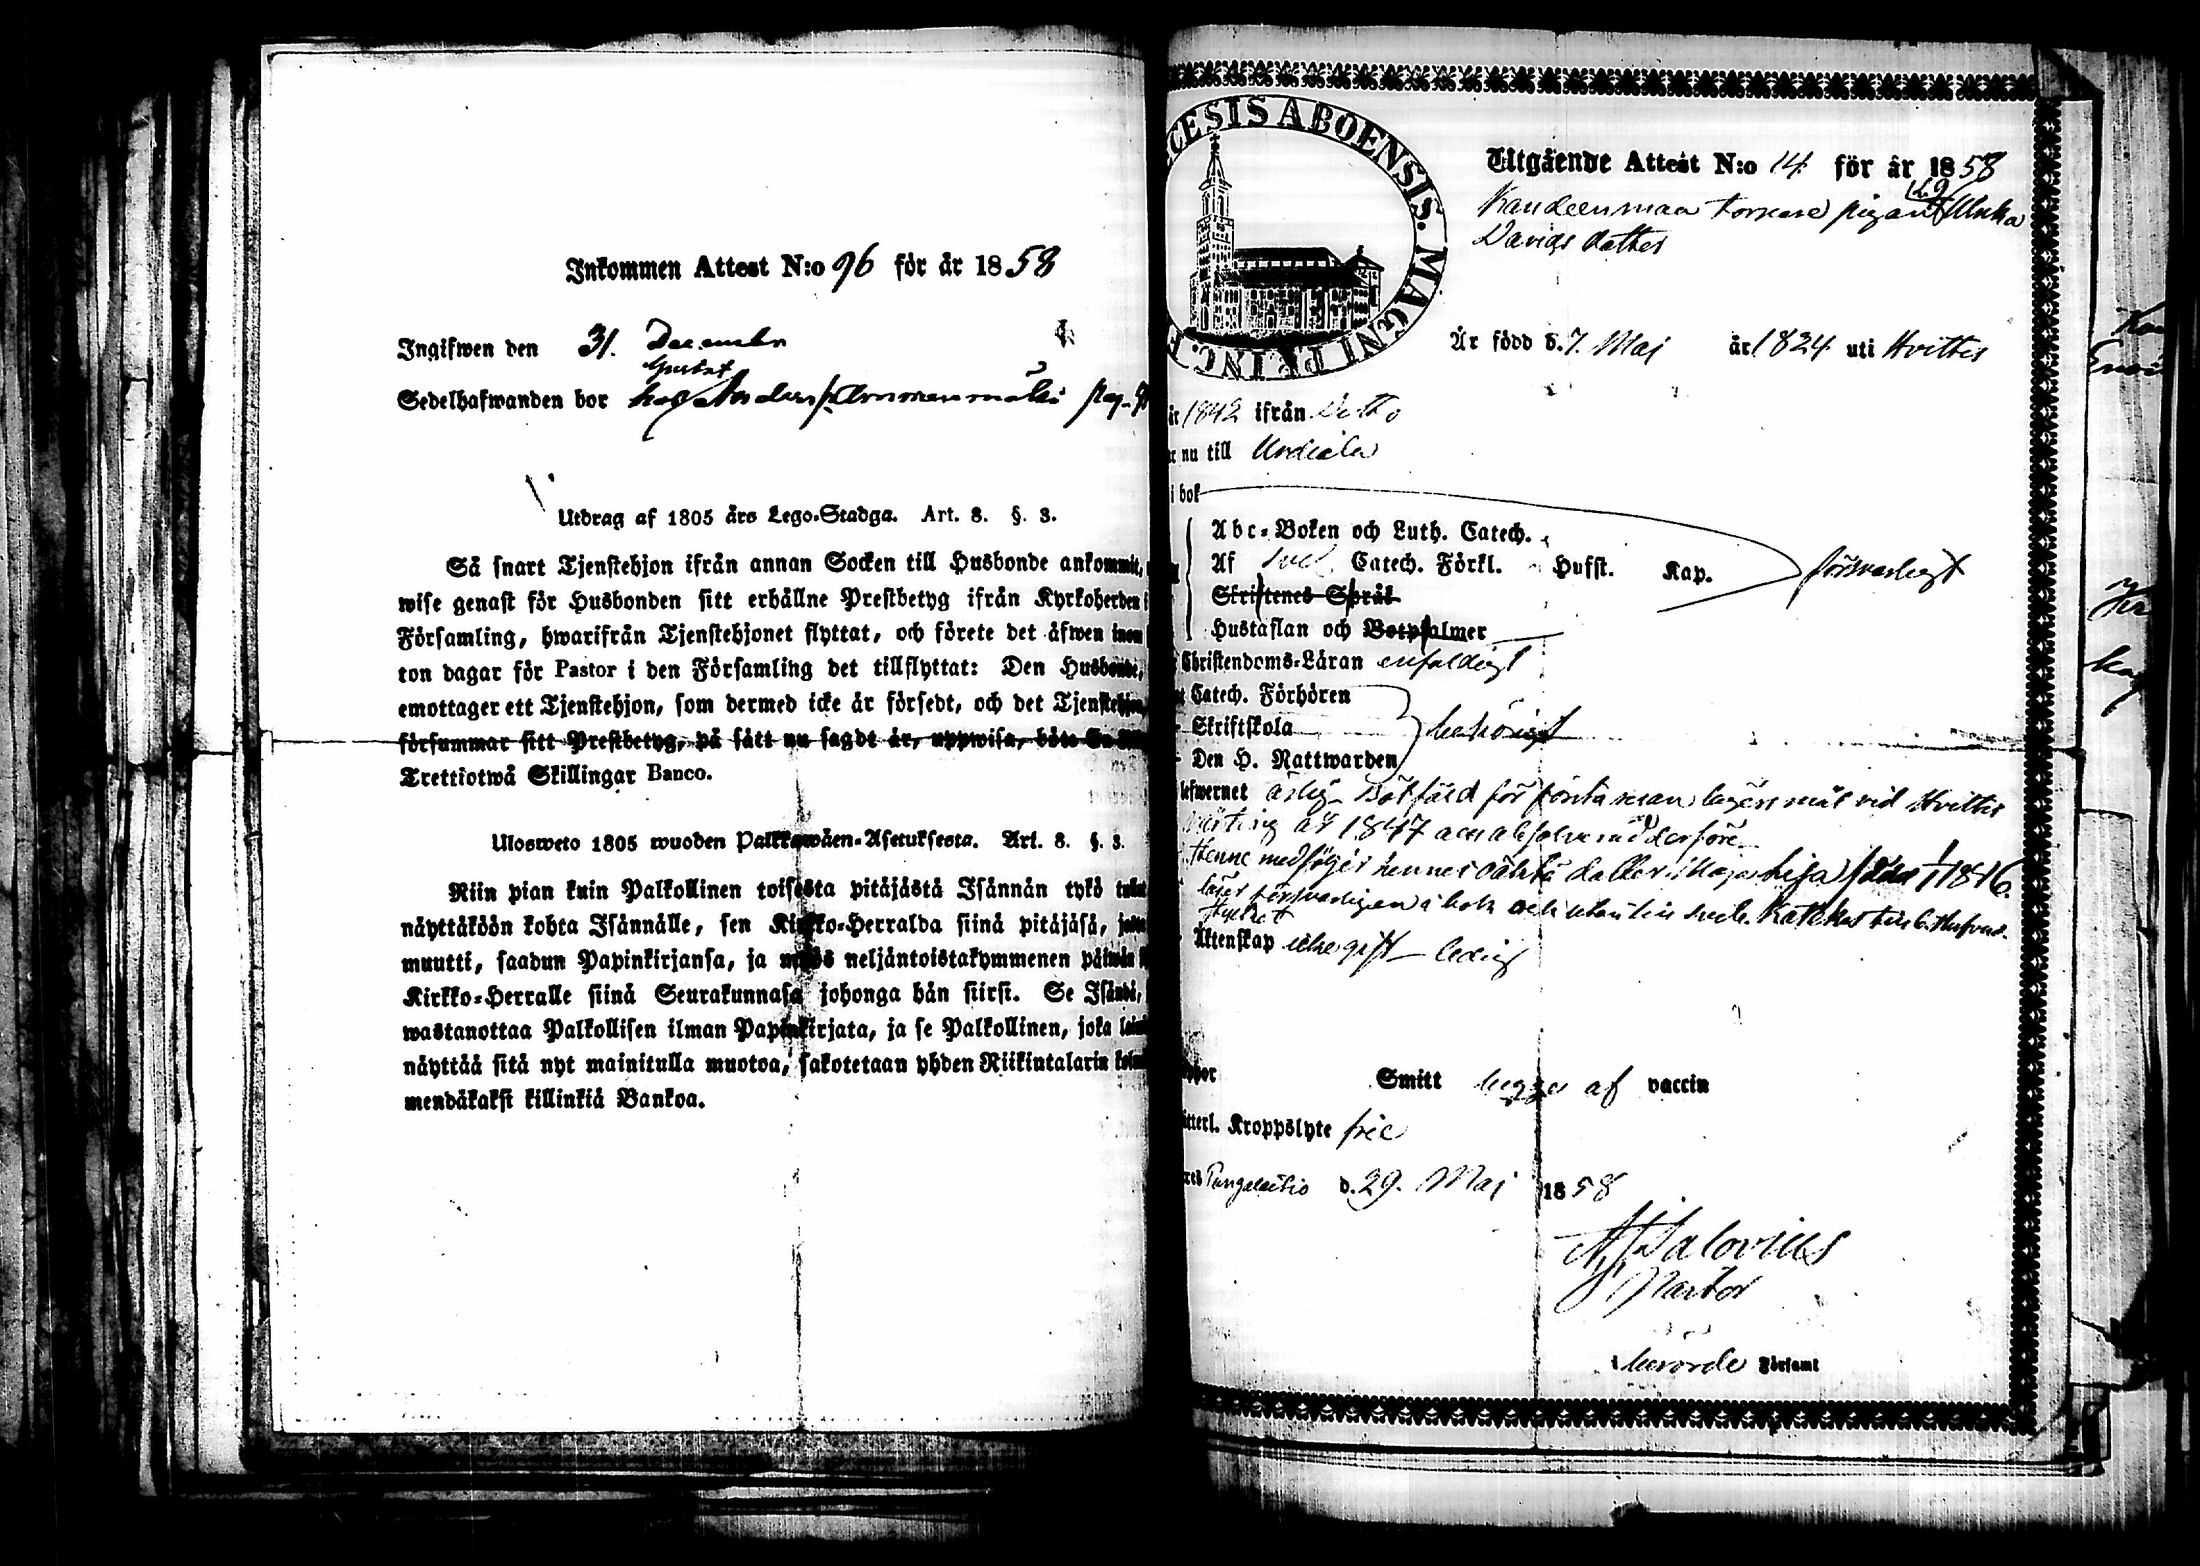 Inkommen Attest N:o 96 för år 1858
Ingifwen den 31. December
Gustaf
Sedelhafwanden bor hos Anders pag.
Utdrag af 1805 års Lego-Stadga. Art. 8. §. 3.
Så snart Tjenstehjon ifrån annan Socken till Husbonde ankommit,
wise genast för Husbonden sitt erhållne Prestbetyg ifrån Kyrkoherden i
Församling, hwarifrån Tjenstehjonet flyttat, och förete det äfwen inom
ton dagar för Pastor i den Församling det tillflyttat: Den Husbonde,
emottager ett Tjenstehjon, som dermed icke är försedt, och det Tjenstehjon,
försummar sitt Prestbetyg, på sätt nu sagdt är, uppwisa, böte En
Trettiotwå Skillingar Banco.
Ulosweto 1805 wuoden Palkkawäen-Asetuksesta. Art. 8. §. 3.
Niin pian kuin Palkollinen toisesta pitäjästä Isännän tykö
näyttäköön kohta Isännälle, sen Kirkko-Herralda siinä pitäjäsä,
muutti, saadun Papinkirjansa, ja myös neljäntoistakymmenen päiwän
Kirkko-Herralle siinä Seurakunnasa johonga hän siirsi. Se Isändä,
wastanottaa Palkollisen ilman Papinkirjata, ja se Palkollinen, joka
näyttää sitä nyt mainitulla muotoa, sakotetaan yhden Riikintalarin
mendäkaksi killinkiä Bankoa.
CESIS ABOENSIS. MAGNI PRINC. F
Utgående Attest N:o 14 för år 1858
pigan Ulrika
Davids dotter
Är född d. 7. Maj år 1824 uti Hvittis
år 1842 ifrån Ditto
nu till Urdiala
i bok
Abc-Boken och Luth. Catech.
Af Sveb. Catech. Förkl. Husst. Kap. försvarligt
Skriftenes Språk
Hustaflan och Botpsalmer
Christendoms-Läran enfaldigt
Catech. Förhören
Skriftskola behörigt
Den H. Nattwarden
lefwernet ärlig. Bötfäld för första resan lägersmål vid Hvittis
ting år 1847 och absolverad derföre.
Henne medföljer hennes oäkta dotter Maja Lisa född 1/1 1846.
läser försvarligen i bok och utantill Sveb. Katekes
stycket
Äktenskap icke gift – ledig
Smitt begge af vaccin
Kroppslyte frie
Pungalaitio d. 29. Maj 1858
Salovius
Pastor
i berörde Församl